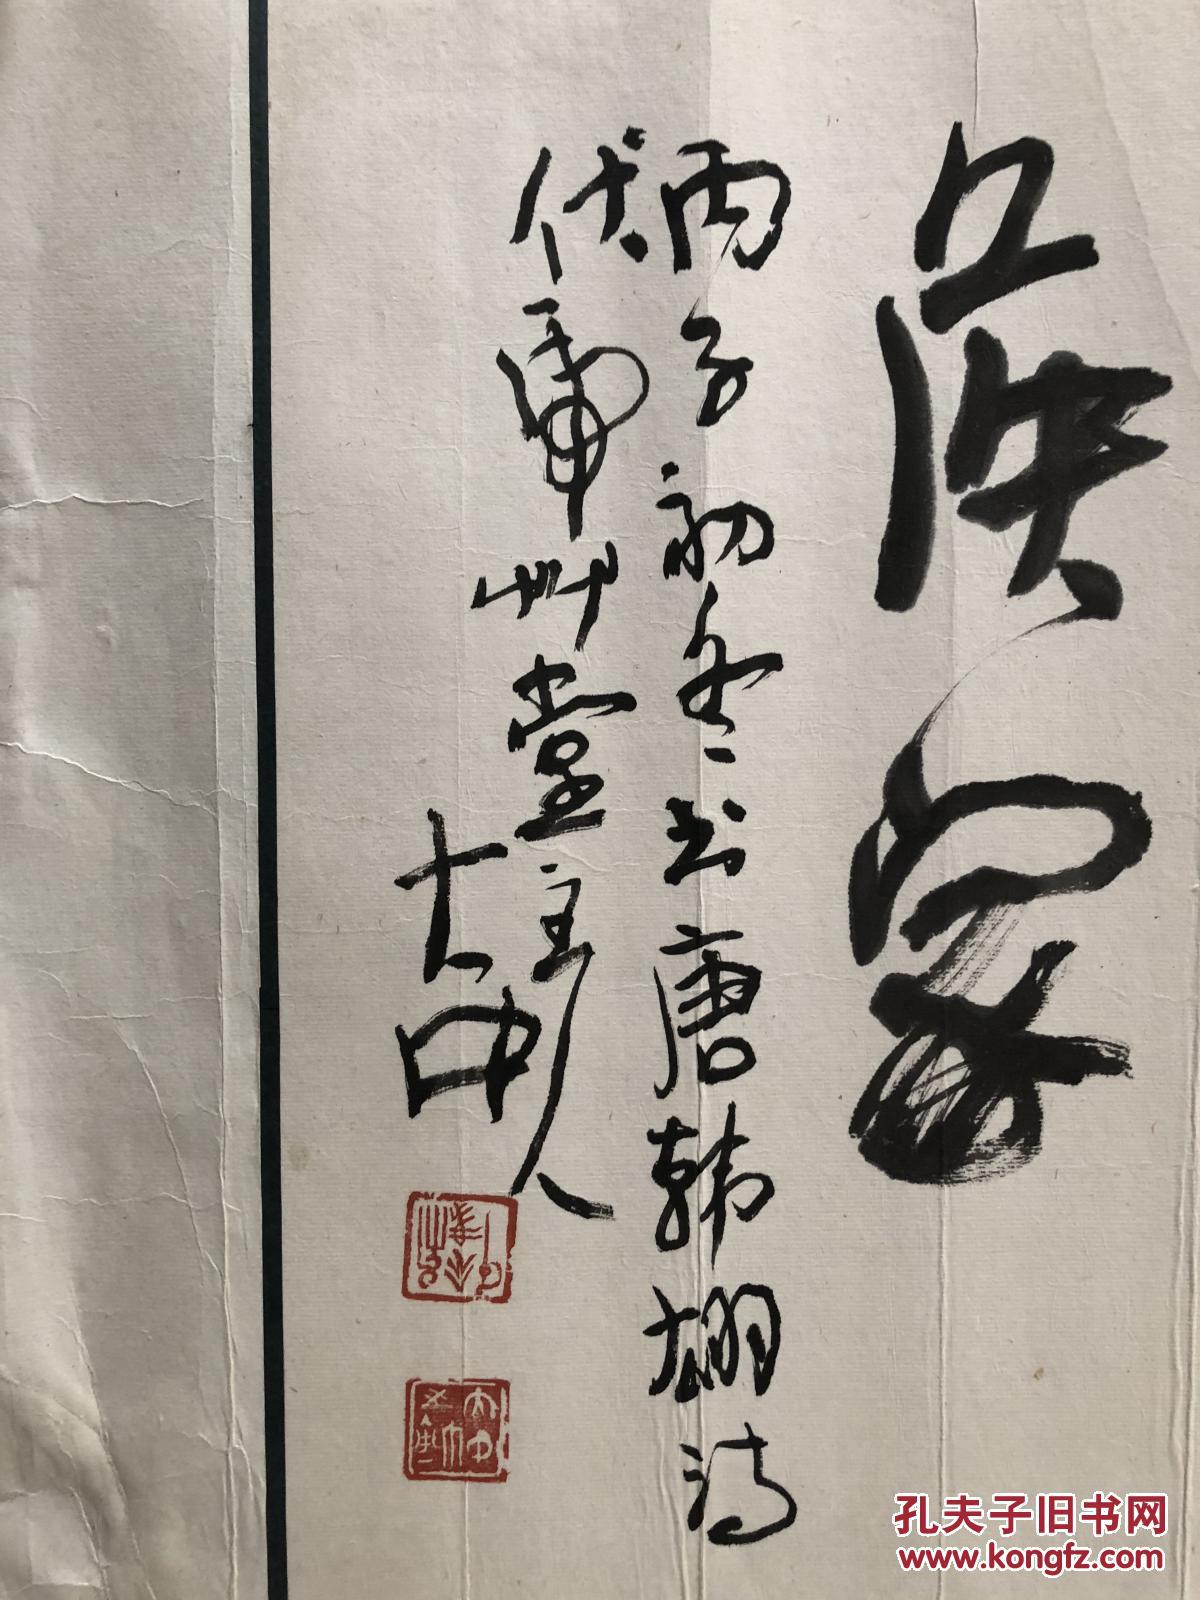 五侯家
丙子初冬书唐韩翃诗
伏虎艸堂主人
大中
孔夫子旧书网
www.kongfz.com